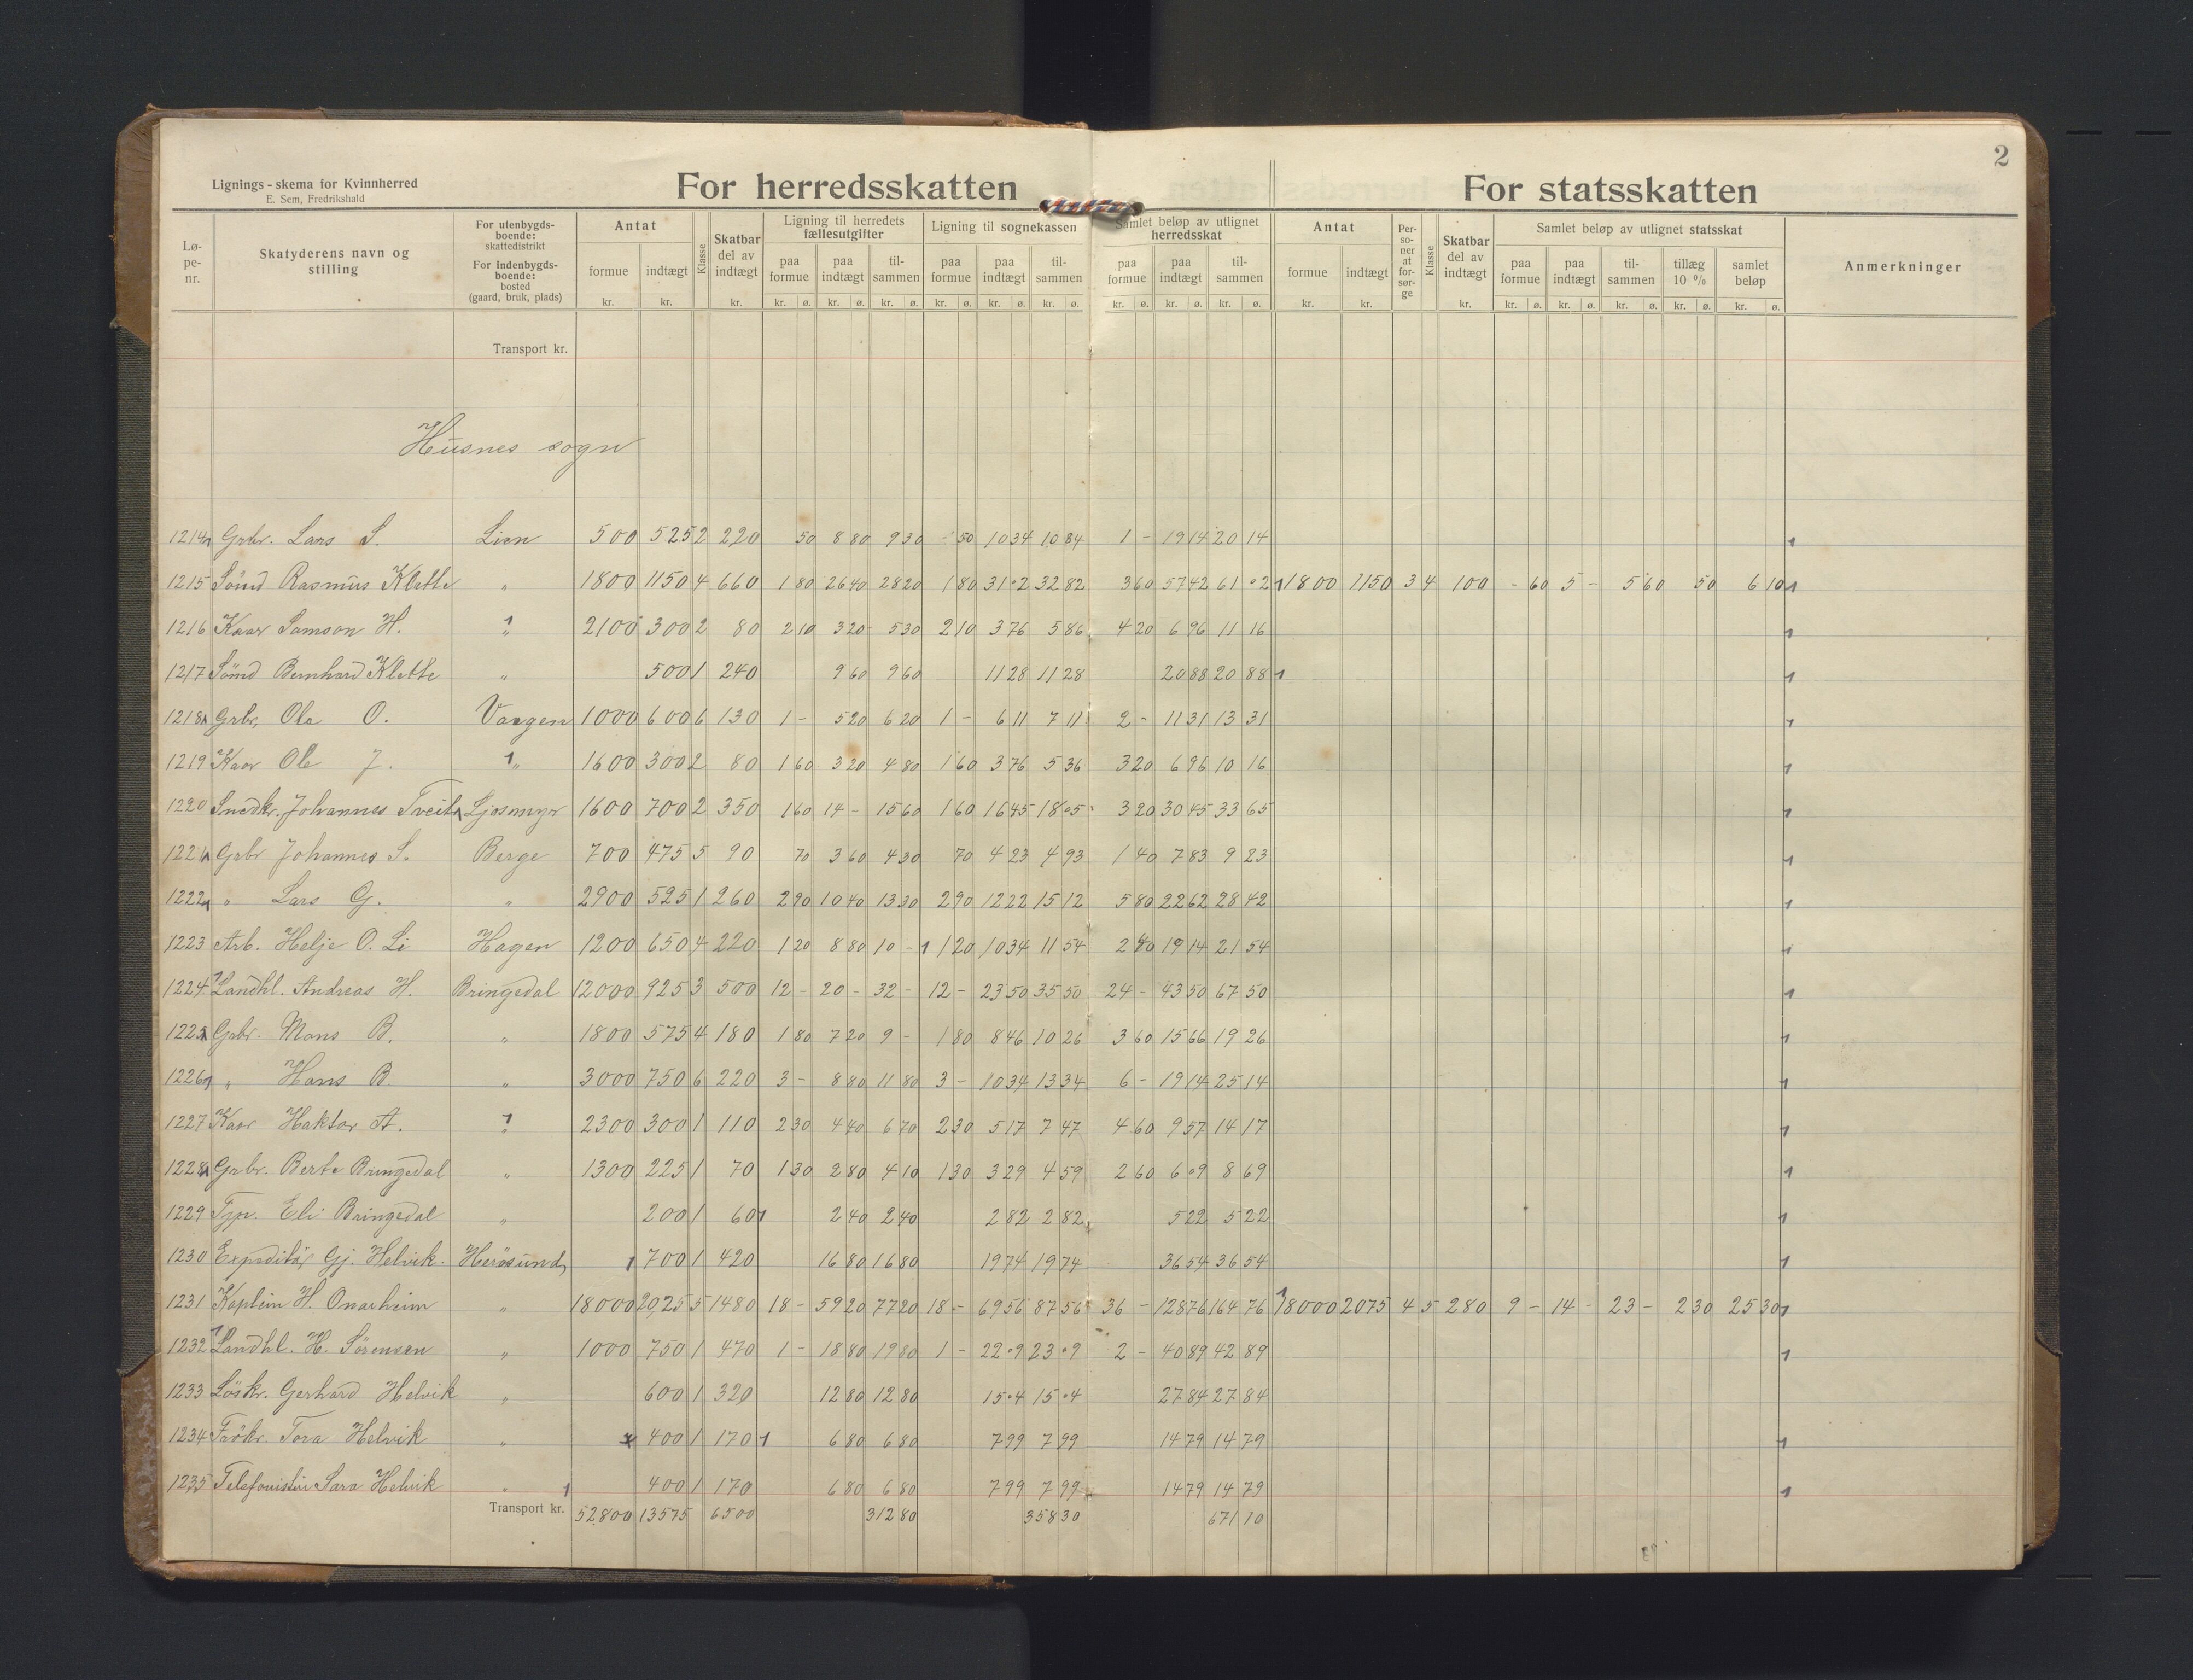 2
Lignings-skema for Kvinnherred
E. Sem, Fredrikshald
For herredsskatten
For statsskatten
Lø-pe-nr. Skatyderens navn og stilling For utenbygds-boende: skattedistrikt For indenbygds-boende: bosted (gaard, bruk, plads) Antat formue kr. indtægt kr. Klasse Skatbar del av indtægt kr. Ligning til herredets fællesutgifter paa formue kr. ø. paa indtægt kr. ø. til-sammen kr. ø. Ligning til sognekassen paa formue kr. ø. paa indtægt kr. ø. til-sammen kr. ø. Samlet beløp av utlignet herredsskat paa formue kr. ø. paa indtægt kr. ø. til-sammen kr. ø. Antat formue kr. indtægt kr. Per-so-ner at for-sør-ge Klasse Skatbar del av indtægt kr. Samlet beløp av utlignet statsskat paa formue kr. ø. paa indtægt kr. ø. til-sammen kr. ø. tillæg 10 % kr. ø. samlet beløp kr. ø. Anmerkninger
Transport kr.
Husnes sogn
1214 Grbr. Lars S. Lien 500 525 2 220 50 8 80 9 30 - 50 10 34 10 84 1 - 19 14 20 14
1215 Sömd Rasmus Klette " 1800 1150 4 660 1 80 26 40 28 20 1 80 31 02 32 82 3 60 57 42 61 02 1800 1150 3 4 100 - 60 5 - 5 60 50 6 10
1216 Kaar Samson H. " 2100 300 2 80 2 10 3 20 5 30 2 10 3 76 5 86 4 20 6 96 11 16
1217 Sömd Bernhard Klette " 500 1 240 9 60 9 60 11 28 11 28 20 88 20 88
1218 Grbr. Ole O. Vaagen 1000 600 6 130 1 - 5 20 6 20 1 - 6 11 7 11 2 - 11 31 13 31
1219 Kaar Ole J. " 1600 300 2 80 1 60 3 20 4 80 1 60 3 76 5 36 3 20 6 96 10 16
1220 Snedkr. Johannes Tveita Ljosmyr 1600 700 2 350 1 60 14 - 15 60 1 60 16 45 18 05 3 20 30 45 33 65
1221 Grbr Johannes S. Berge 700 475 5 90 70 3 60 4 30 70 4 23 4 93 1 40 7 83 9 23
1222 " Lars G. " 2900 525 1 260 2 90 10 40 13 30 2 90 12 22 15 12 5 80 22 62 28 42
1223 Arb. Helje O. Li Hagen 1200 650 4 220 1 20 8 80 10 - 1 20 10 34 11 54 2 40 19 14 21 54
1224 Landhl. Andreas H. Bringedal 12000 925 3 500 12 - 20 - 32 - 12 - 23 50 35 50 24 - 43 50 67 50
1225 Grbr. Mons B. " 1800 575 4 180 1 80 7 20 9 - 1 80 8 46 10 26 3 60 15 66 19 26
1226 " Hans B. " 3000 750 6 220 3 - 8 80 11 80 3 - 10 34 13 34 6 - 19 14 25 14
1227 Kaar Haktor A. " 2300 300 1 110 2 30 4 40 6 70 2 30 5 17 7 47 4 60 9 57 14 17
1228 Grbr. Berte Bringedal " 1300 225 1 70 1 30 2 80 4 10 1 30 3 29 4 59 2 60 6 09 8 69
1229 Tjp. Eli Bringedal " 200 1 60 2 40 2 40 2 82 2 82 5 22 5 22
1230 Expeditör Gj. Helvik. Herösund 700 1 420 16 80 16 80 19 74 19 74 36 54 36 54
1231 Kaptein H. Onarheim " 18000 2025 5 1480 18 - 59 20 77 20 18 - 69 56 87 56 36 - 128 76 164 76 18000 2075 4 5 280 9 - 14 - 23 - 2 30 25 30
1232 Landhl. H. Sörensen " 1000 750 1 470 1 - 18 80 19 80 1 - 22 09 23 09 2 - 40 89 42 89
1233 Löskr. Gerhard Helvik " 600 1 320 12 80 12 80 15 04 15 04 27 84 27 84
1234 Frökr. Tora Helvik " 400 1 170 6 80 6 80 7 99 7 99 14 79 14 79
1235 Telefonistin Sara Helvik " 400 1 170 6 80 6 80 7 99 7 99 14 79 14 79
Transport kr. 52800 13575 6500 312 80 358 30 671 10